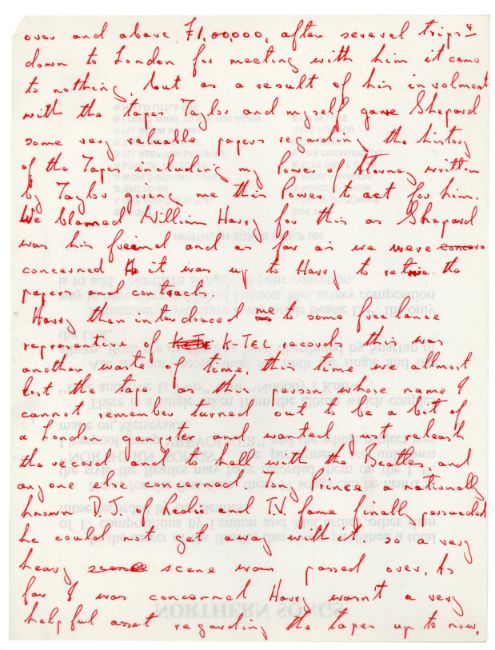 over and above £1,00,000, after several trips
down to London for meeting with him it came
to nothing, but as a result of his involment
with the tapes Taylor and myself gave Shepard
some very valuable papers regarding the history
of the Tapes including my Power of Atorney written
by Taylor giving me this Power to act for him.
We blamed William Harry for this as Shepard
was his freind and as far as we were
concerned it was up to Harry to the
papers and contracts.
Harry then introduced me to some freelance
representive of K-TEL records this was
another waste of time, this time we allmost
lost the tape as this person whose name I
cannot remember turned out to be a bit of
a London gangster and wanted just releash
the record and to hell with the Beatles, and
anyone else concerned. Tony Prince a nationally
known D.J. of Radio and T.V. fame finally
he could not get away with it, so a very
heavy scene was passed over, As
far I was concerned Harry wasn't a very
helpful asset regarding the tapes up to now,
NORTHERN SONGS